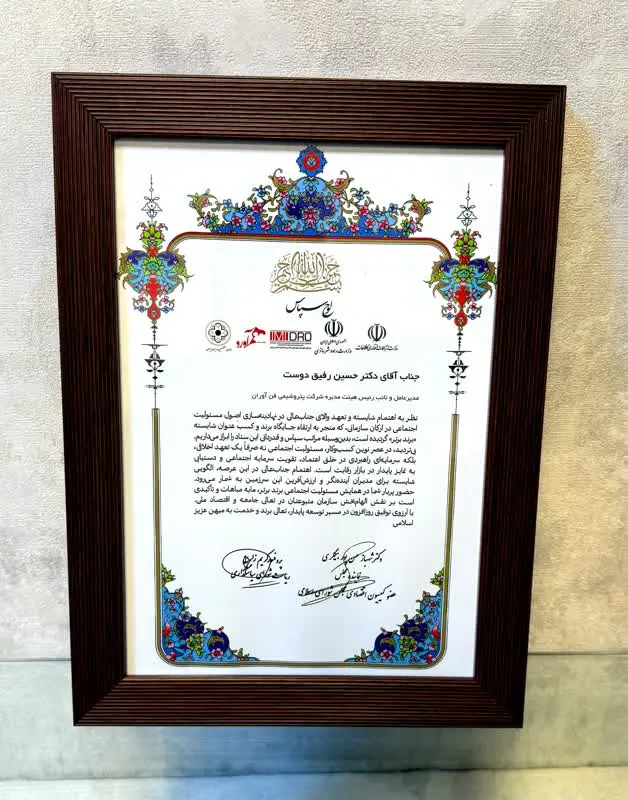 بسم الله الرحمن الرحیم
لوح سپاس
وزارت ارتباطات و فناوری اطلاعات
جمهوری اسلامی ایران
وزارت راه و شهرسازی
IMIDRO
جناب آقای دکتر حسین رفیق دوست
مدیرعامل و نائب رئیس هیئت مدیره شرکت پتروشیمی فن آوران
نظر به اهتمام شایسته و تعهد والای جناب‌عالی در نهادینه‌سازی اصول مسئولیت
اجتماعی در ارکان سازمانی، که منجر به ارتقاء جایگاه برند و کسب عنوان شایسته
«برند برتر» گردیده است، بدین‌وسیله مراتب سپاس و قدردانی این ستاد را ابراز می‌داریم.
بی‌تردید، در عصر نوین کسب‌وکار، مسئولیت اجتماعی نه صرفاً یک تعهد اخلاقی،
بلکه سرمایه‌ای راهبردی در خلق اعتماد، تقویت سرمایه اجتماعی و دستیابی
به تمایز پایدار در بازار رقابت است. اهتمام جناب‌عالی در این عرصه، الگویی
شایسته برای مدیران آینده‌نگر و ارزش‌آفرین این سرزمین به شمار می‌رود.
حضور پربار شما در همایش مسئولیت اجتماعی برند برتر، مایه مباهات و تأکیدی
است بر نقش الهام‌بخش سازمان متبوعتان در تعالی جامعه و اقتصاد ملی.
با آرزوی توفیق روزافزون در مسیر توسعه پایدار، تعالی برند و خدمت به میهن عزیز
اسلامی
دکتر شهباز حسن پور بیگلری
نماینده مجلس
عضو کمیسیون اقتصادی مجلس شورای اسلامی
پروفسور کریم
ریاست شورای سیاستگذاری